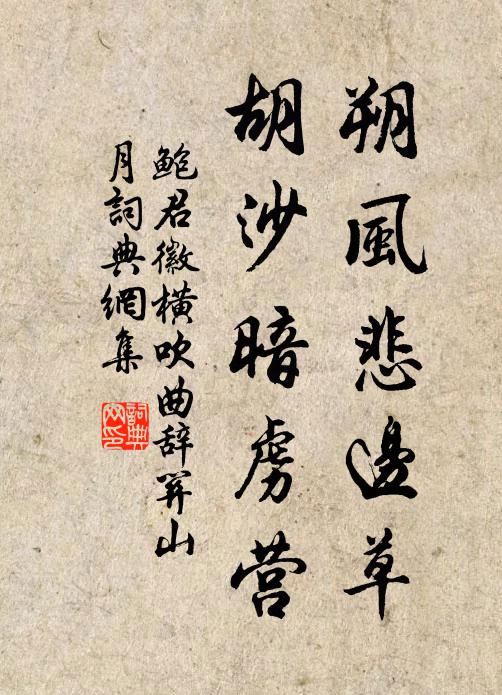 朔風悲邊草
胡沙暗虜營
鮑君徽橫吹曲辞關山
月詞典網集
詞典網印